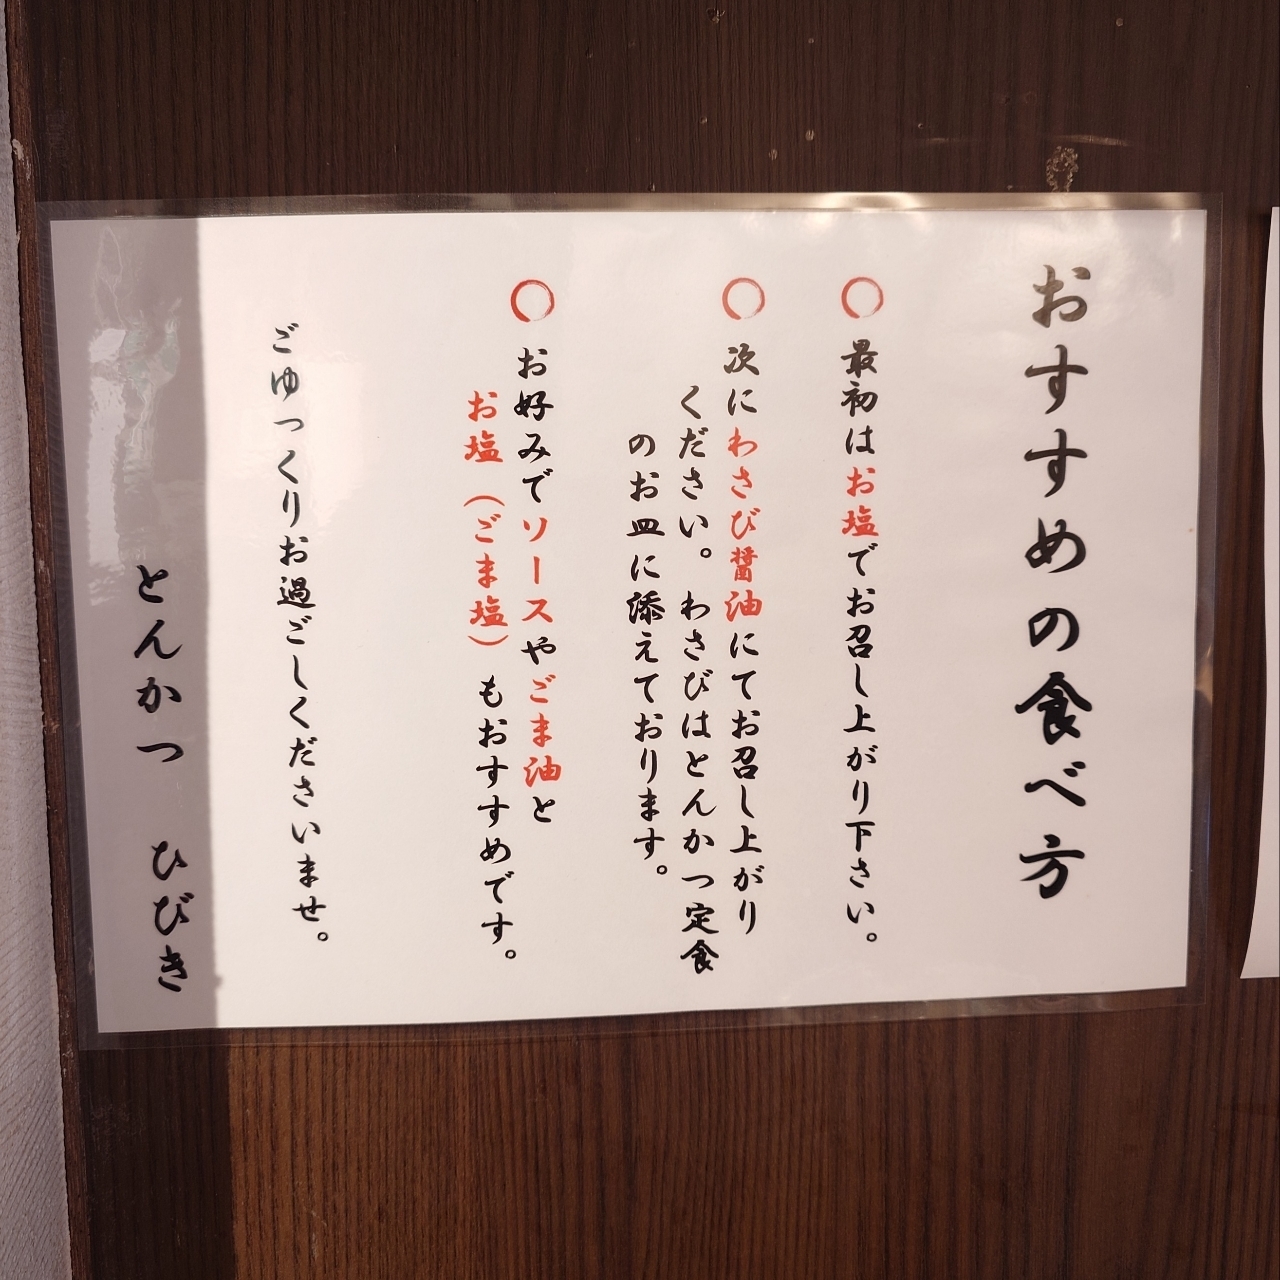 おすすめの食べ方
○ 最初はお塩でお召し上がり下さい。
○ 次にわさび醤油にてお召し上がり
ください。わさびはとんかつ定食
のお皿に添えております。
○ お好みでソースやごま油と
お塩（ごま塩）もおすすめです。
ごゆっくりお過ごしくださいませ。
とんかつ ひびき